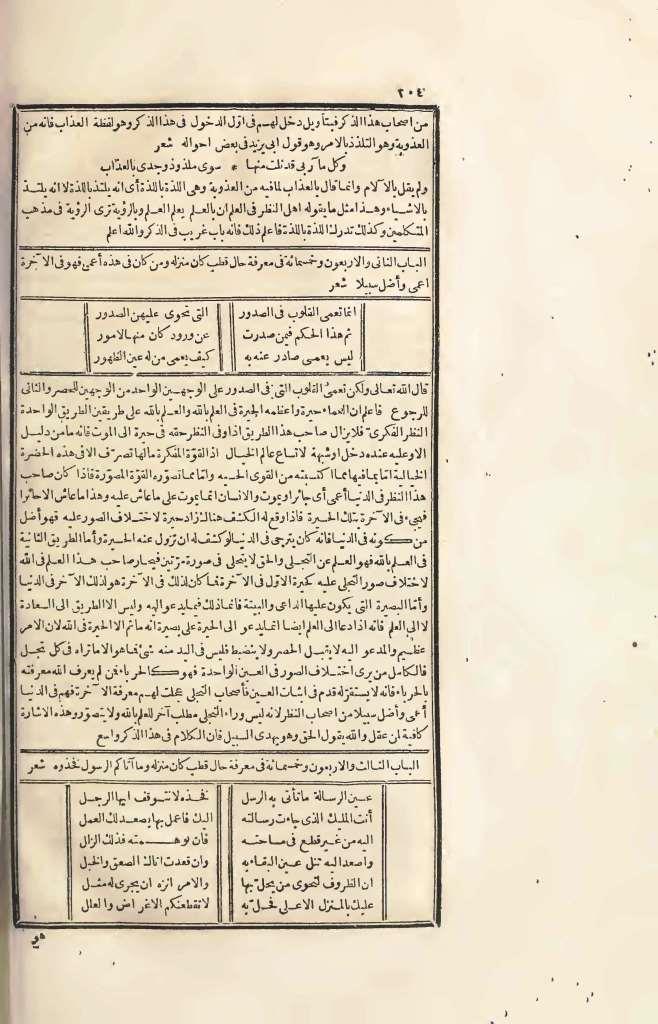 ٢٠٤
من اصحاب هذا الذكر فيتأويل دخل لهم فى اوّل الدخول فى هذا الذكر وهو لفظة العذاب فانه من
العذوبة وهو التلذذ بالامر وهو قول ابى يزيد فى بعض احواله شعر
وكل مآربى قد نلت منها * سوى ملذوذ وجدى بالعذاب
ولم يقل بالآلام وانما قال بالعذاب لما فيه من العذوبة وهى اللذة باللذة أى انه يلتذ باللذة لا انه يلتذ
بالاشياء وهذا مثل ما يقوله اهل النظر فى العلم ان بالعلم يعلم العلم وبالرؤية ترى الرؤية فى مذهب
المتكلمين وكذلك تدرك اللذة باللذة فاعلم ذلك فانه باب غريب فى الذكر والله اعلم
الباب الثانى والاربعون وخمسمائة فى معرفة حال قطب كان منزله ومن كان فى هذه أعمى فهو فى الآخرة
اعمى وأضل سبيلا شعر
انما تعمى القلوب فى الصدور التى تحوى عليهن الصدور
ثم هذا الحكم فيمن صدرت عن ورود كان منها الامور
ليس يعمى صادر عنه به كيف يعمى من له عين الظهور
قال الله تعالى ولكن تعمى القلوب التى فى الصدور على الوجهين الواحد من الوجهين للحصر والثانى
للرجوع فاعلم ان العماء حيرة واعظمه الحيرة فى العلم بالله والعلم بالله على طريقين الطريق الواحدة
النظر الفكرى فلا يزال صاحب هذا الطريق اذا وفى النظر حقه فى حيرة الى الموت فانه ما من دليل
الا وعليه عنده دخل او شبهة لاتساع عالم الخيال اذ القوّة المفكرة مالها تصرّف الا فى هذه الحضرة
الخيالية اما بما فيها مما اكتسبته من القوى الحسية واما مما تصوّره القوّة المصوّرة فاذا كان صاحب
هذا النظر فى الدنيا أعمى أى حائرا ويموت والانسان انما يموت على ما عاش عليه وهذا ما عاش الا حائرا
فيجىء فى الآخرة بتلك الحيرة فاذا وقع له الكشف هنالك زاد حيرة لاختلاف الصور عليه فهو أضل
من كونه فى الدنيا فانه كان يترجى فى الدنيا لو كشف له ان تزول عنه الحيرة وأما الطريق الثانية
فى العلم بالله فهو العلم عن التجلى والحق لا يتجلى فى صورة مرّتين فيحار صاحب هذا العلم فى الله
لاختلاف صور التجلى عليه كحيرة الاوّل فى الآخرة فما كان لذلك فى الآخرة هو لذلك الآخر فى الدنيا
وأما البصيرة التى يكون عليها الداعى والبينة فانما ذلك فيما يدعو اليه وليس الا الطريق الى السعادة
لا الى العلم فانه اذا دعا الى العلم ايضا انما يدعو الى الحيرة على بصيرة انه ما ثم الا الحيرة فى الله لان الامر
عظيم والمدعو اليه لا يقبل الحصر ولا ينضبط فليس فى اليد منه شئ فما هو الا ما تراه فى كل تجل
فالكامل من يرى اختلاف الصور فى العين الواحدة فهو كالحرباء فمن لم يعرف الله معرفته
بالحرباء فانه لا يستقرّ له قدم فى اثبات العين فأصحاب التجلى عجلت لهم معرفة الآخرة فهم فى الدنيا
أعمى وأضل سبيلا من اصحاب النظر لانه ليس وراء التجلى مطلب آخر للعلم بالله ولا يتصوّر وهذه الاشارة
كافية لمن عقل والله يقول الحق وهو يهدى السبيل فان الكلام فى هذا الذكر واسع
الباب الثالث والاربعون وخمسمائة فى معرفة حال قطب كان منزله وما آتاكم الرسول فخذوه شعر
عين الرسالة ما تأتى به الرسل فخذه لا تتوقف ايها الرجل
أنت المليك الذى جاءت رسالته اليك فاعمل بها يصعد لك العمل
اليه من غير قطع فى مساحته فان توهمته فذلك الزلل
واصعد اليه تنل عين البقاء به وان قعدت اتاك الصعق والخبل
ان الظروف لتحوى من يحل بها والامر انزه ان يجرى له مثل
عليك بالمنزل الاعلى فحل به لا تقطعنكم الاغراض والعلل